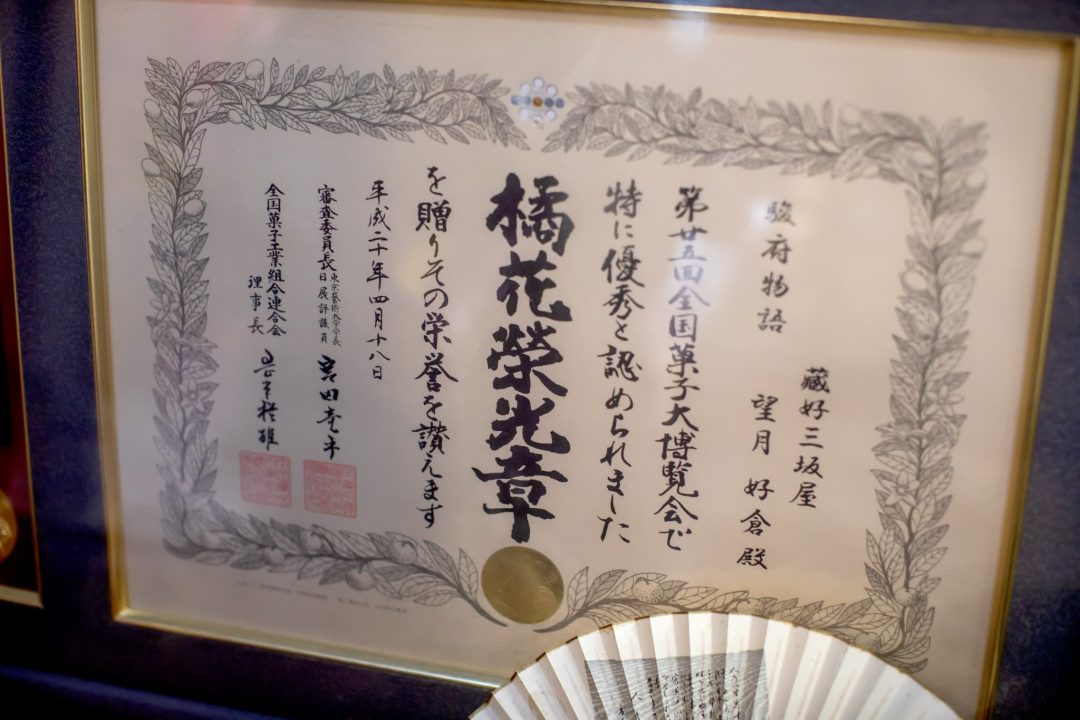 駿府物語
藏好三坂屋
望月 好倉殿
第廿五回全国菓子大博覧会で
特に優秀と認められました
橘花榮光章
を贈りその栄誉を讃えます
平成二十年四月十八日
審査委員長 東京藝術大学学長
日展評議員
宮田亮平
全国菓子工業組合連合会
理事長